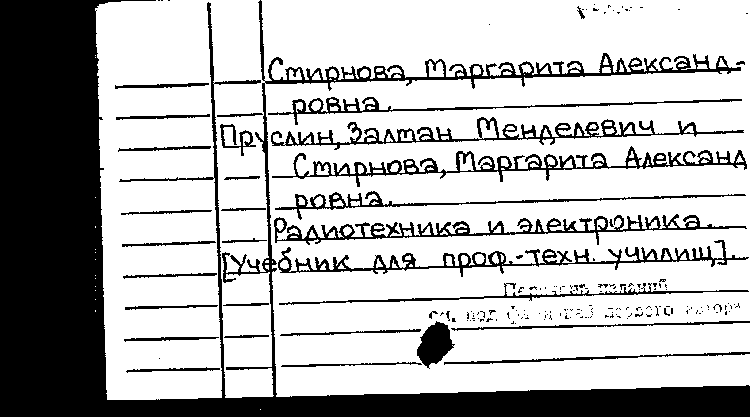 Смирнова, Маргарита Александ-
ровна.
Пруслин, Залтан Менделевич и
Смирнова, Маргарита Александ
ровна.
Радиотехника и электроника.
[Учебник для проф.-техн. училищ].
изданий
см. под первого автора